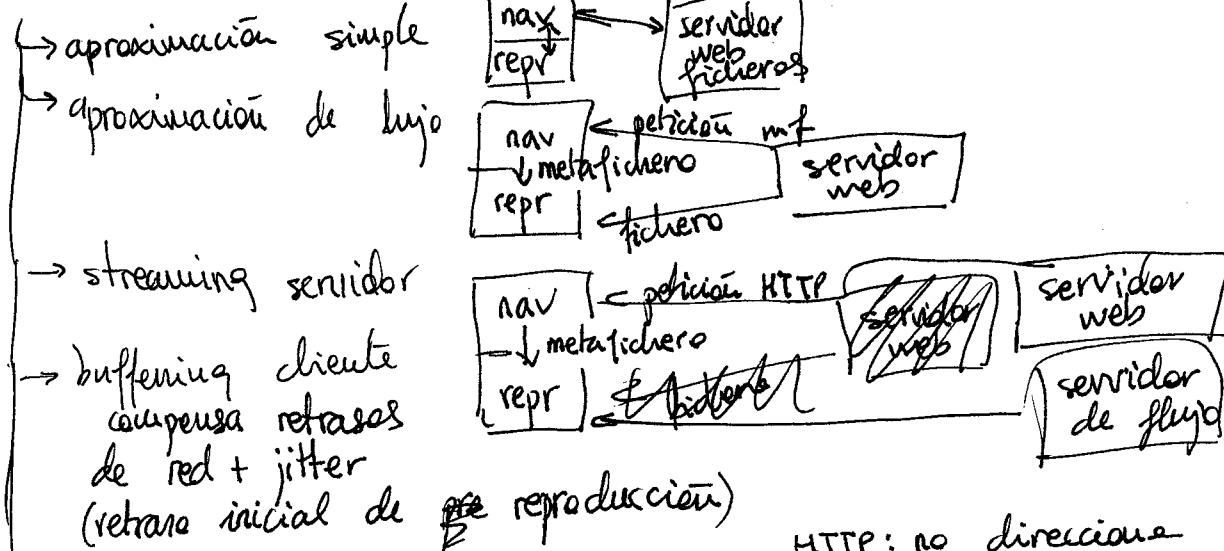 → aproximación simple
nav
repr
servidor
web
ficheros
→ aproximación de flujo
nav
↓ metafichero
repr
petición mf
fichero
servidor
web
→ streaming servidor
nav
↓ metafichero
repr
petición HTTP
servidor
web
servidor
web
servidor
de flujo
→ buffering cliente
compensa retrasos
de red + jitter
(retraso inicial de reproducción)
HTTP: no direcciona